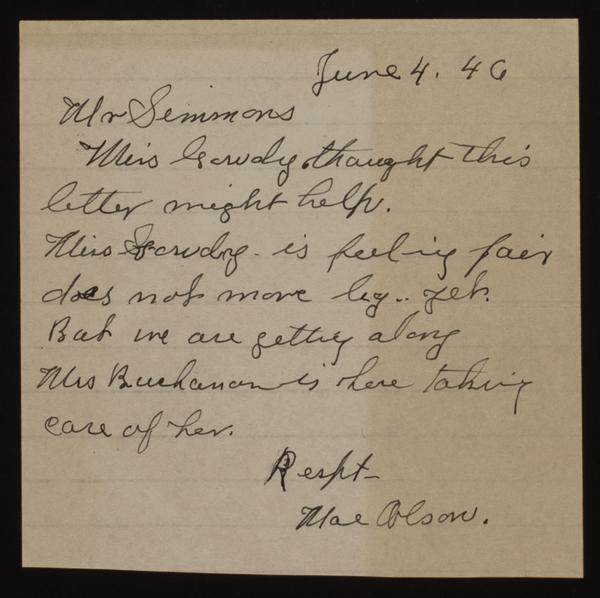 June 4. 46
Mr Simmons
Miss Gowdy thought this
letter might help.
Miss Gowdy - is feeling fair
does not move leg.. yet.
But we are getting along
Mrs Buchanan is here taking
care of her.
Respt-
Mae Olson.